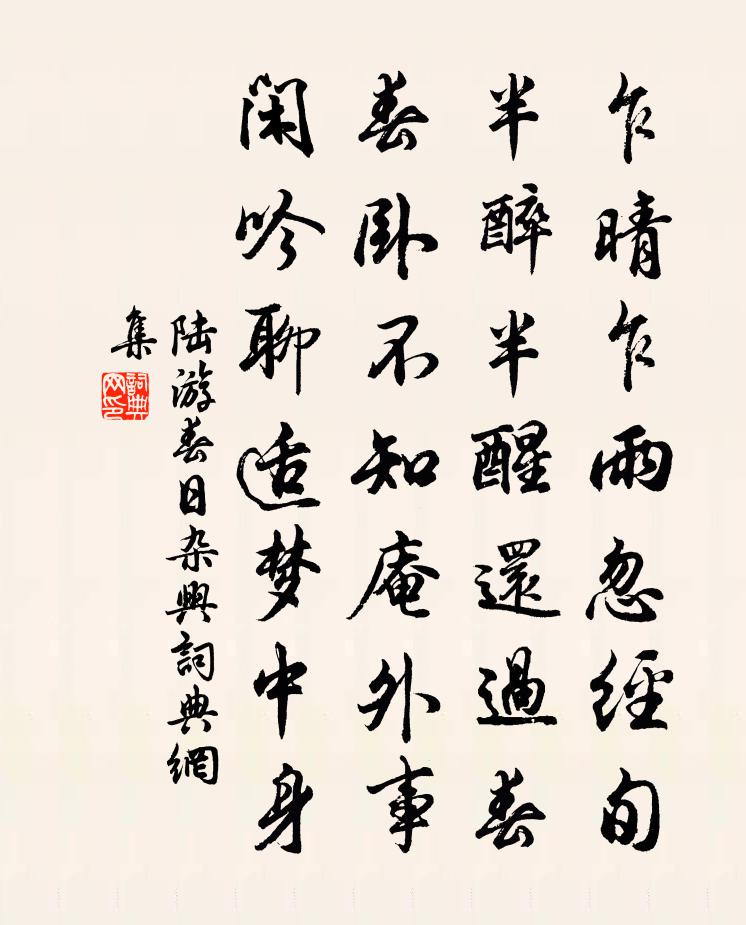 乍晴乍雨忽經旬
半醉半醒還過春
春卧不知庵外事
閑吟聊适梦中身
陆游春日杂興詞典網
集
詞典网印